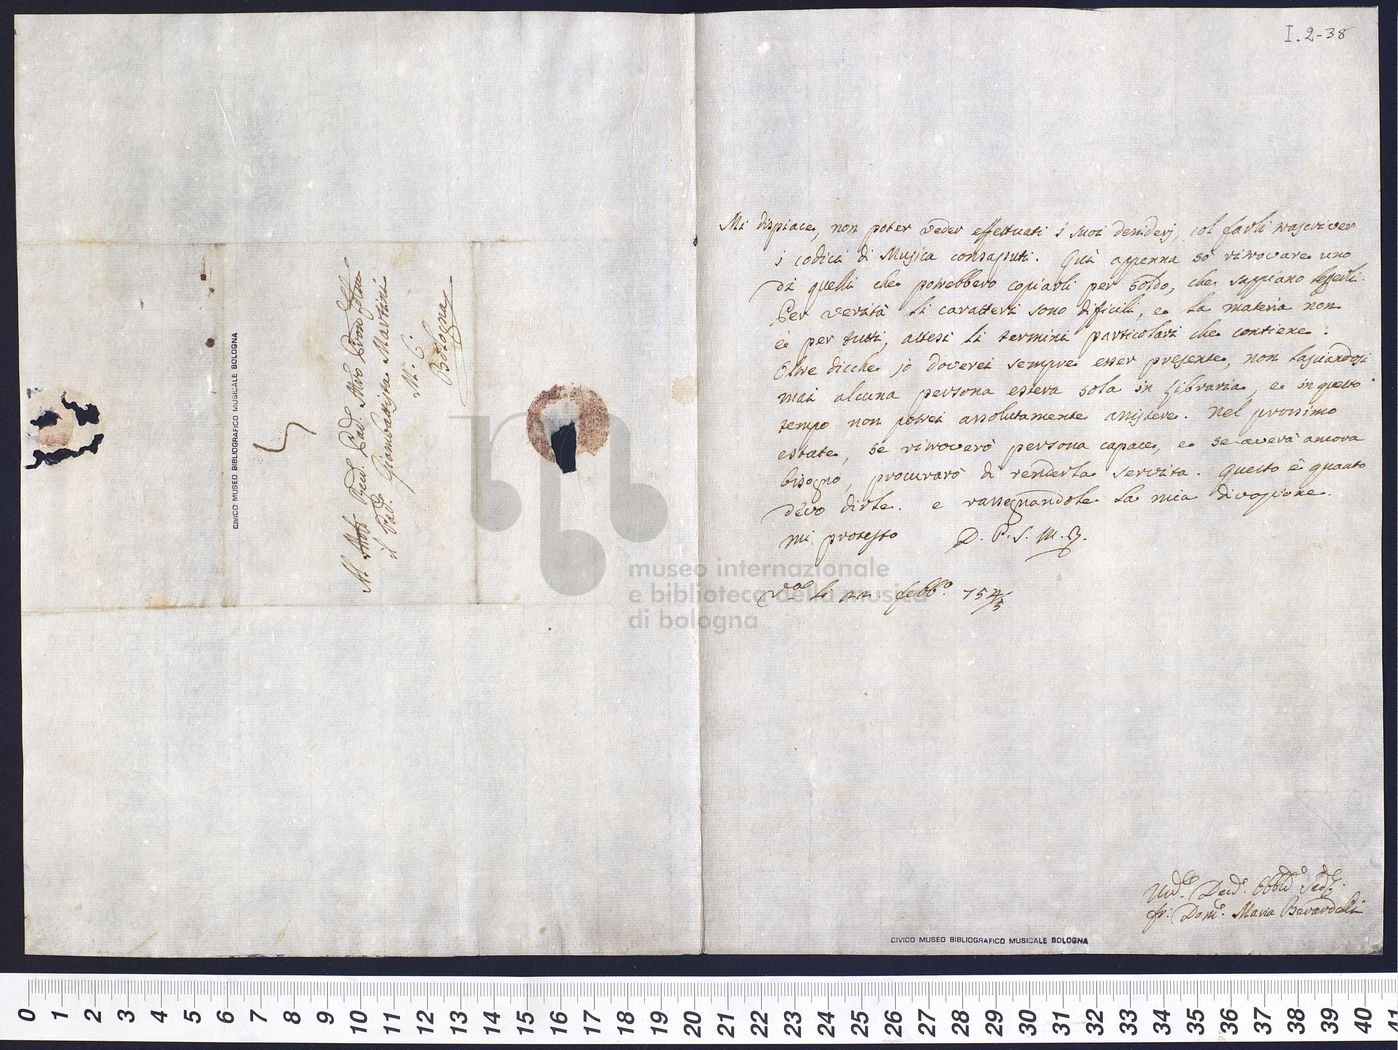 I.2-38
Mi dispiace, non poter veder effettuati i suoi desiderj, col farli trascriver
i codici di Musica consaputi. Quà appenna sò ritrovare uno
di quelli che potrebbero copiarli per soldo, che sappiano
Per verità li caratteri sono dificili, e la materia non
è per tutti, attesi li termini particolari che contiene.
Oltre dicche io doverei sempre esser presente, non lasciandosi
mai alcuna persona estera sola in Libraria, e in questo
tempo non potrei assolutamente assistere. Nel prossimo
estate, se ritroverò persona capace, e se averà ancora
bisogno, procurarò di renderla servita. Questo è quanto
devo dirle. e rassegnandole la mia divozione.
mi protesto D. P. S. M. R.
li 22 febb.o 754/5
Um.e Dev.e Obb.e Ser.e
fr. Dom.o Maria Berardelli
Al Rev. Pad. Pad.
il Pad. Giambattista Martini
M. C.
Bologna
CIVICO MUSEO BIBLIOGRAFICO MUSICALE BOLOGNA
CIVICO MUSEO BIBLIOGRAFICO MUSICALE BOLOGNA
museo internazionale
e biblioteca della musica
di bologna
0 1 2 3 4 5 6 7 8 9 10 11 12 13 14 15 16 17 18 19 20 21 22 23 24 25 26 27 28 29 30 31 32 33 34 35 36 37 38 39 40 41